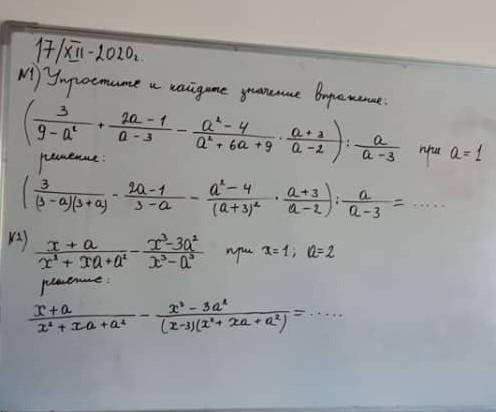 17/XII-2020г.
№1) Упростите и найдите значение вражение:
(3/(9-a²) + (2a-1)/(a-3) - (a²-4)/(a²+6a+9) · (a+3)/(a-2)) : a/(a-3) при a=1
решение:
(3/((3-a)(3+a)) - (2a-1)/(3-a) - (a²-4)/(a+3)² · (a+3)/(a-2)) : a/(a-3) = .....
№2) (x+a)/(x²+xa+a²) - (x³-3a²)/(x³-a³) при x=1; a=2
решение:
(x+a)/(x²+xa+a²) - (x³-3a²)/((x-3)(x²+xa+a²)) = .....